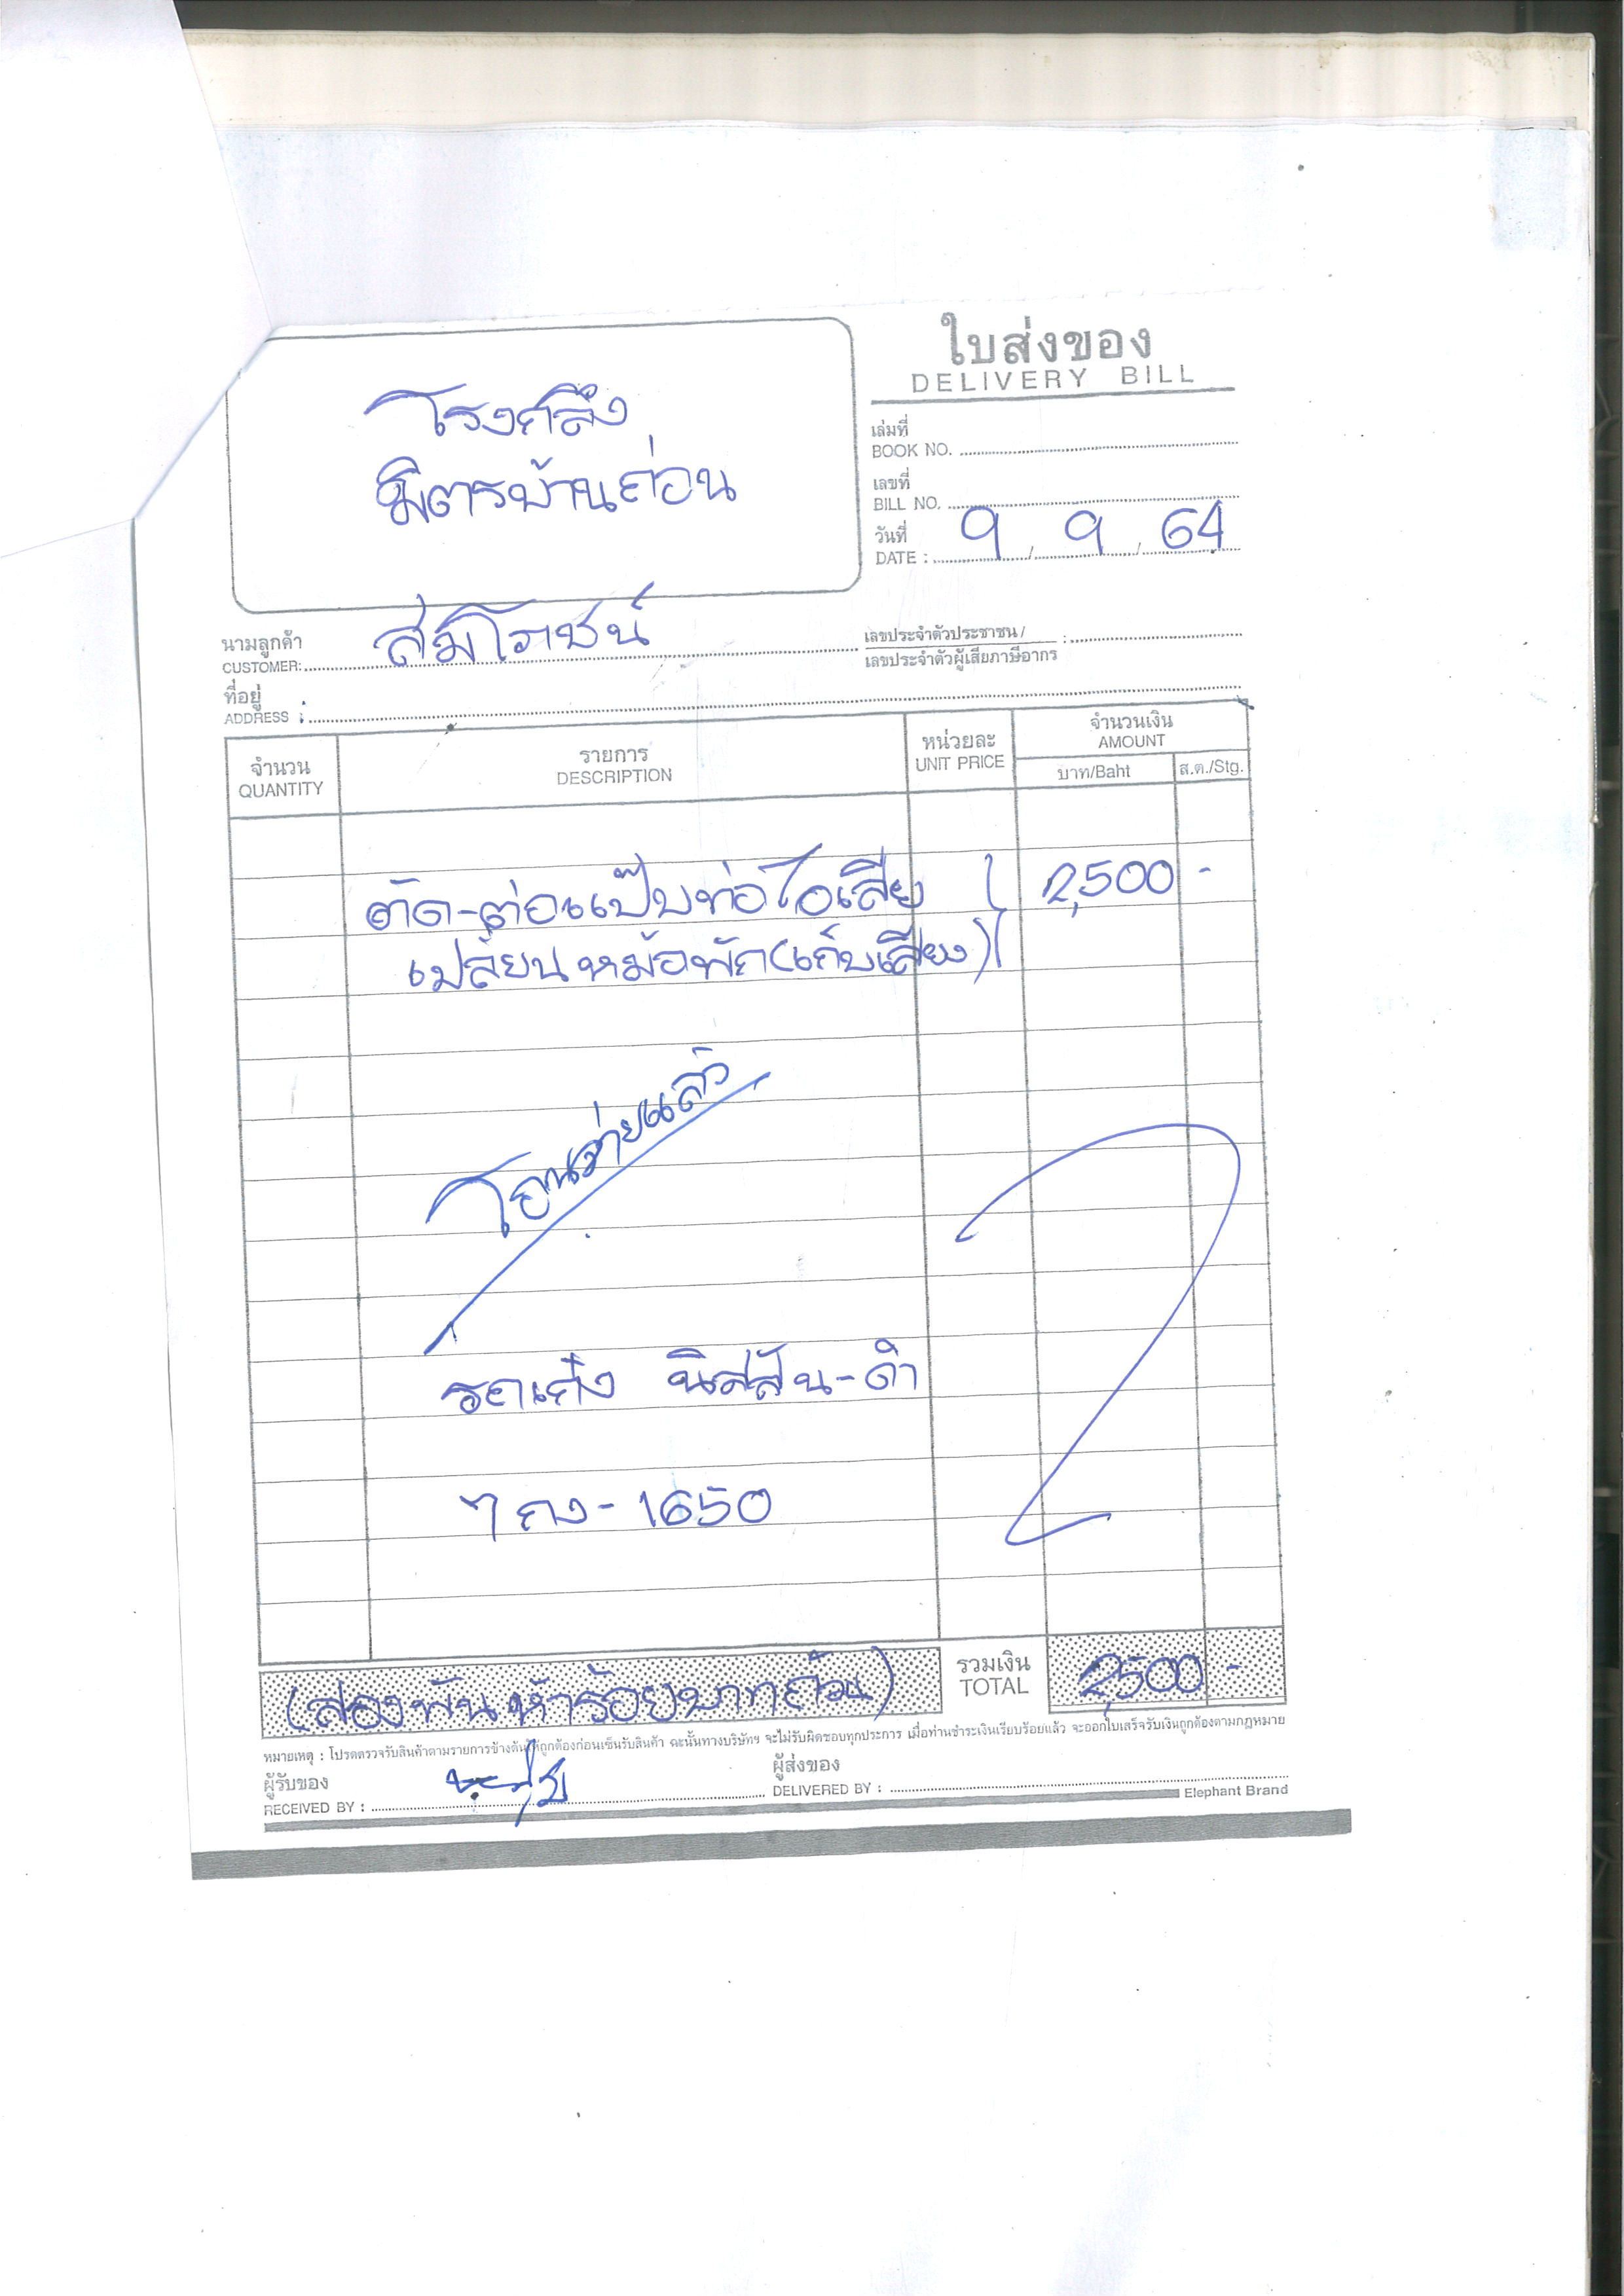 ใบส่งของ
DELIVERY BILL
โรงกลึง
มิตรบ้านถ่อน
เล่มที่
BOOK NO.
เลขที่
BILL NO.
วันที่
DATE : 9 / 9 / 64
นามลูกค้า
CUSTOMER: สมโรชน์
เลขประจำตัวประชาชน / :
เลขประจำตัวผู้เสียภาษีอากร
ที่อยู่
ADDRESS :
จำนวน
QUANTITY
รายการ
DESCRIPTION
หน่วยละ
UNIT PRICE
จำนวนเงิน
AMOUNT
บาท/Baht ส.ต./Stg.
ตัด-ต่อแป๊บท่อไอเสีย 2,500 -
เปลี่ยนหม้อพัก(เก็บเสียง)
โอนจ่ายแล้ว
รถเก๋ง นิสสัน-ดำ
กง-1650
(สองพันห้าร้อยบาทถ้วน) รวมเงิน 2,500 -
TOTAL
หมายเหตุ : โปรดตรวจรับสินค้าตามรายการข้างต้นให้ถูกต้องก่อนเซ็นรับสินค้า ฉะนั้นทางบริษัทฯ จะไม่รับผิดชอบทุกประการ เมื่อท่านชำระเงินเรียบร้อยแล้ว จะออกใบเสร็จรับเงินถูกต้องตามกฎหมาย
ผู้รับของ
RECEIVED BY :
ผู้ส่งของ
DELIVERED BY :
Elephant Brand